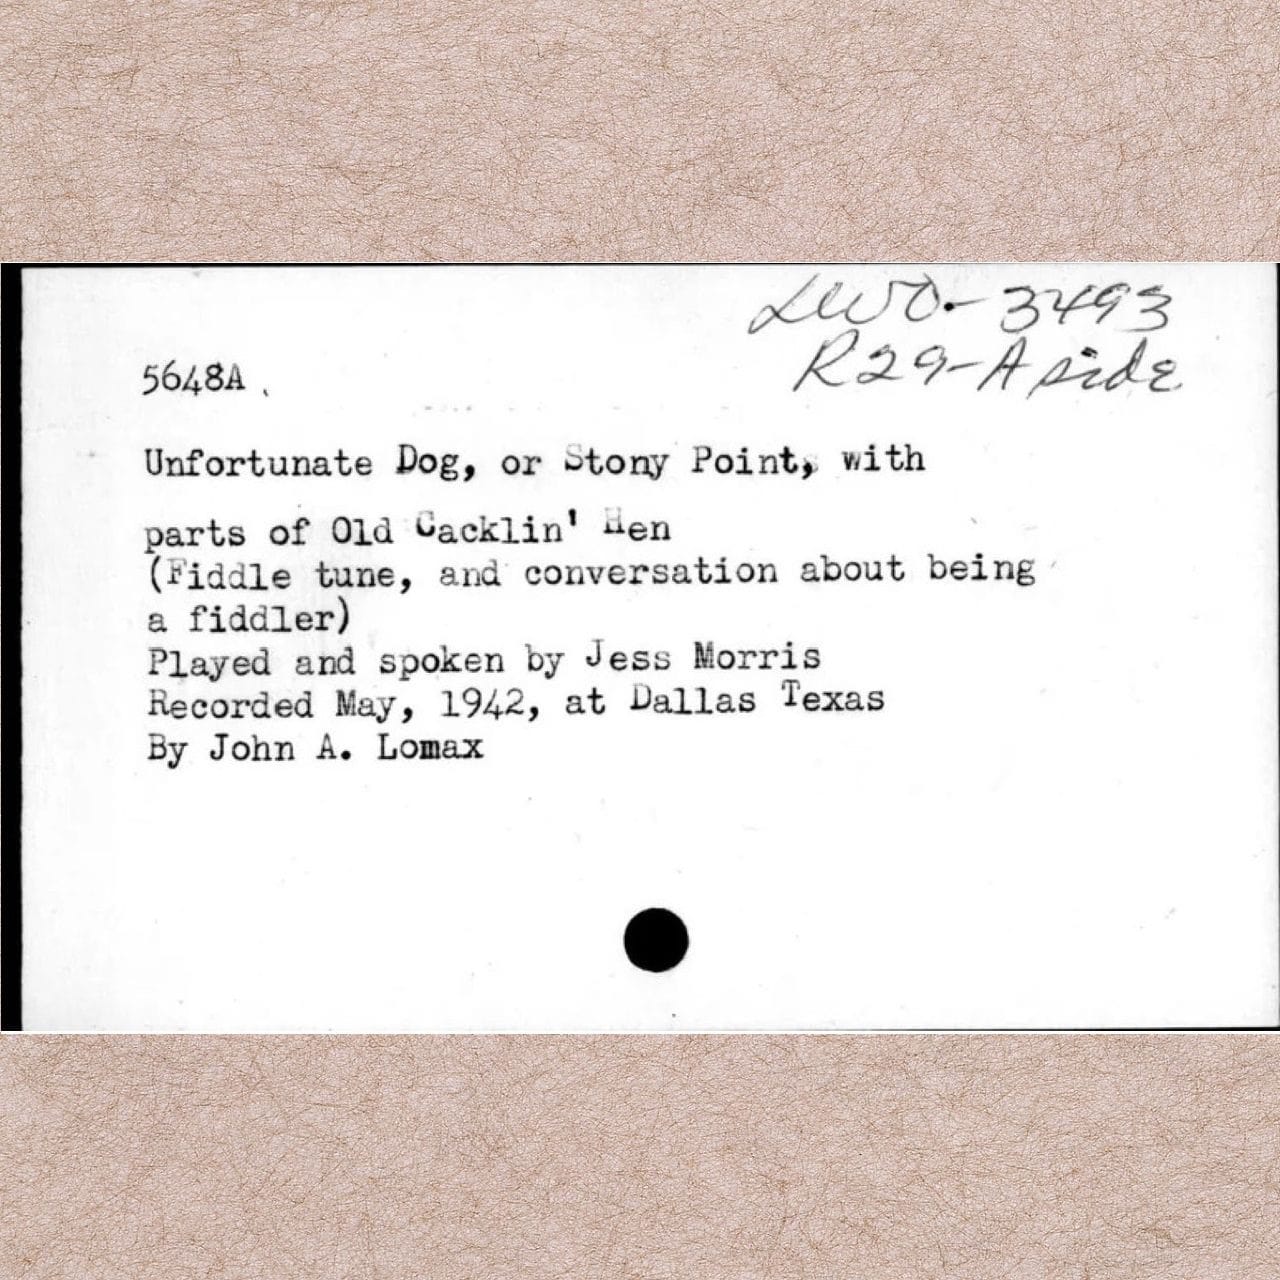 LWO-3493
R29-A side
5648A
Unfortunate Dog, or Stony Point, with
parts of Old Cacklin' Hen
(Fiddle tune, and conversation about being
a fiddler)
Played and spoken by Jess Morris
Recorded May, 1942, at Dallas Texas
By John A. Lomax